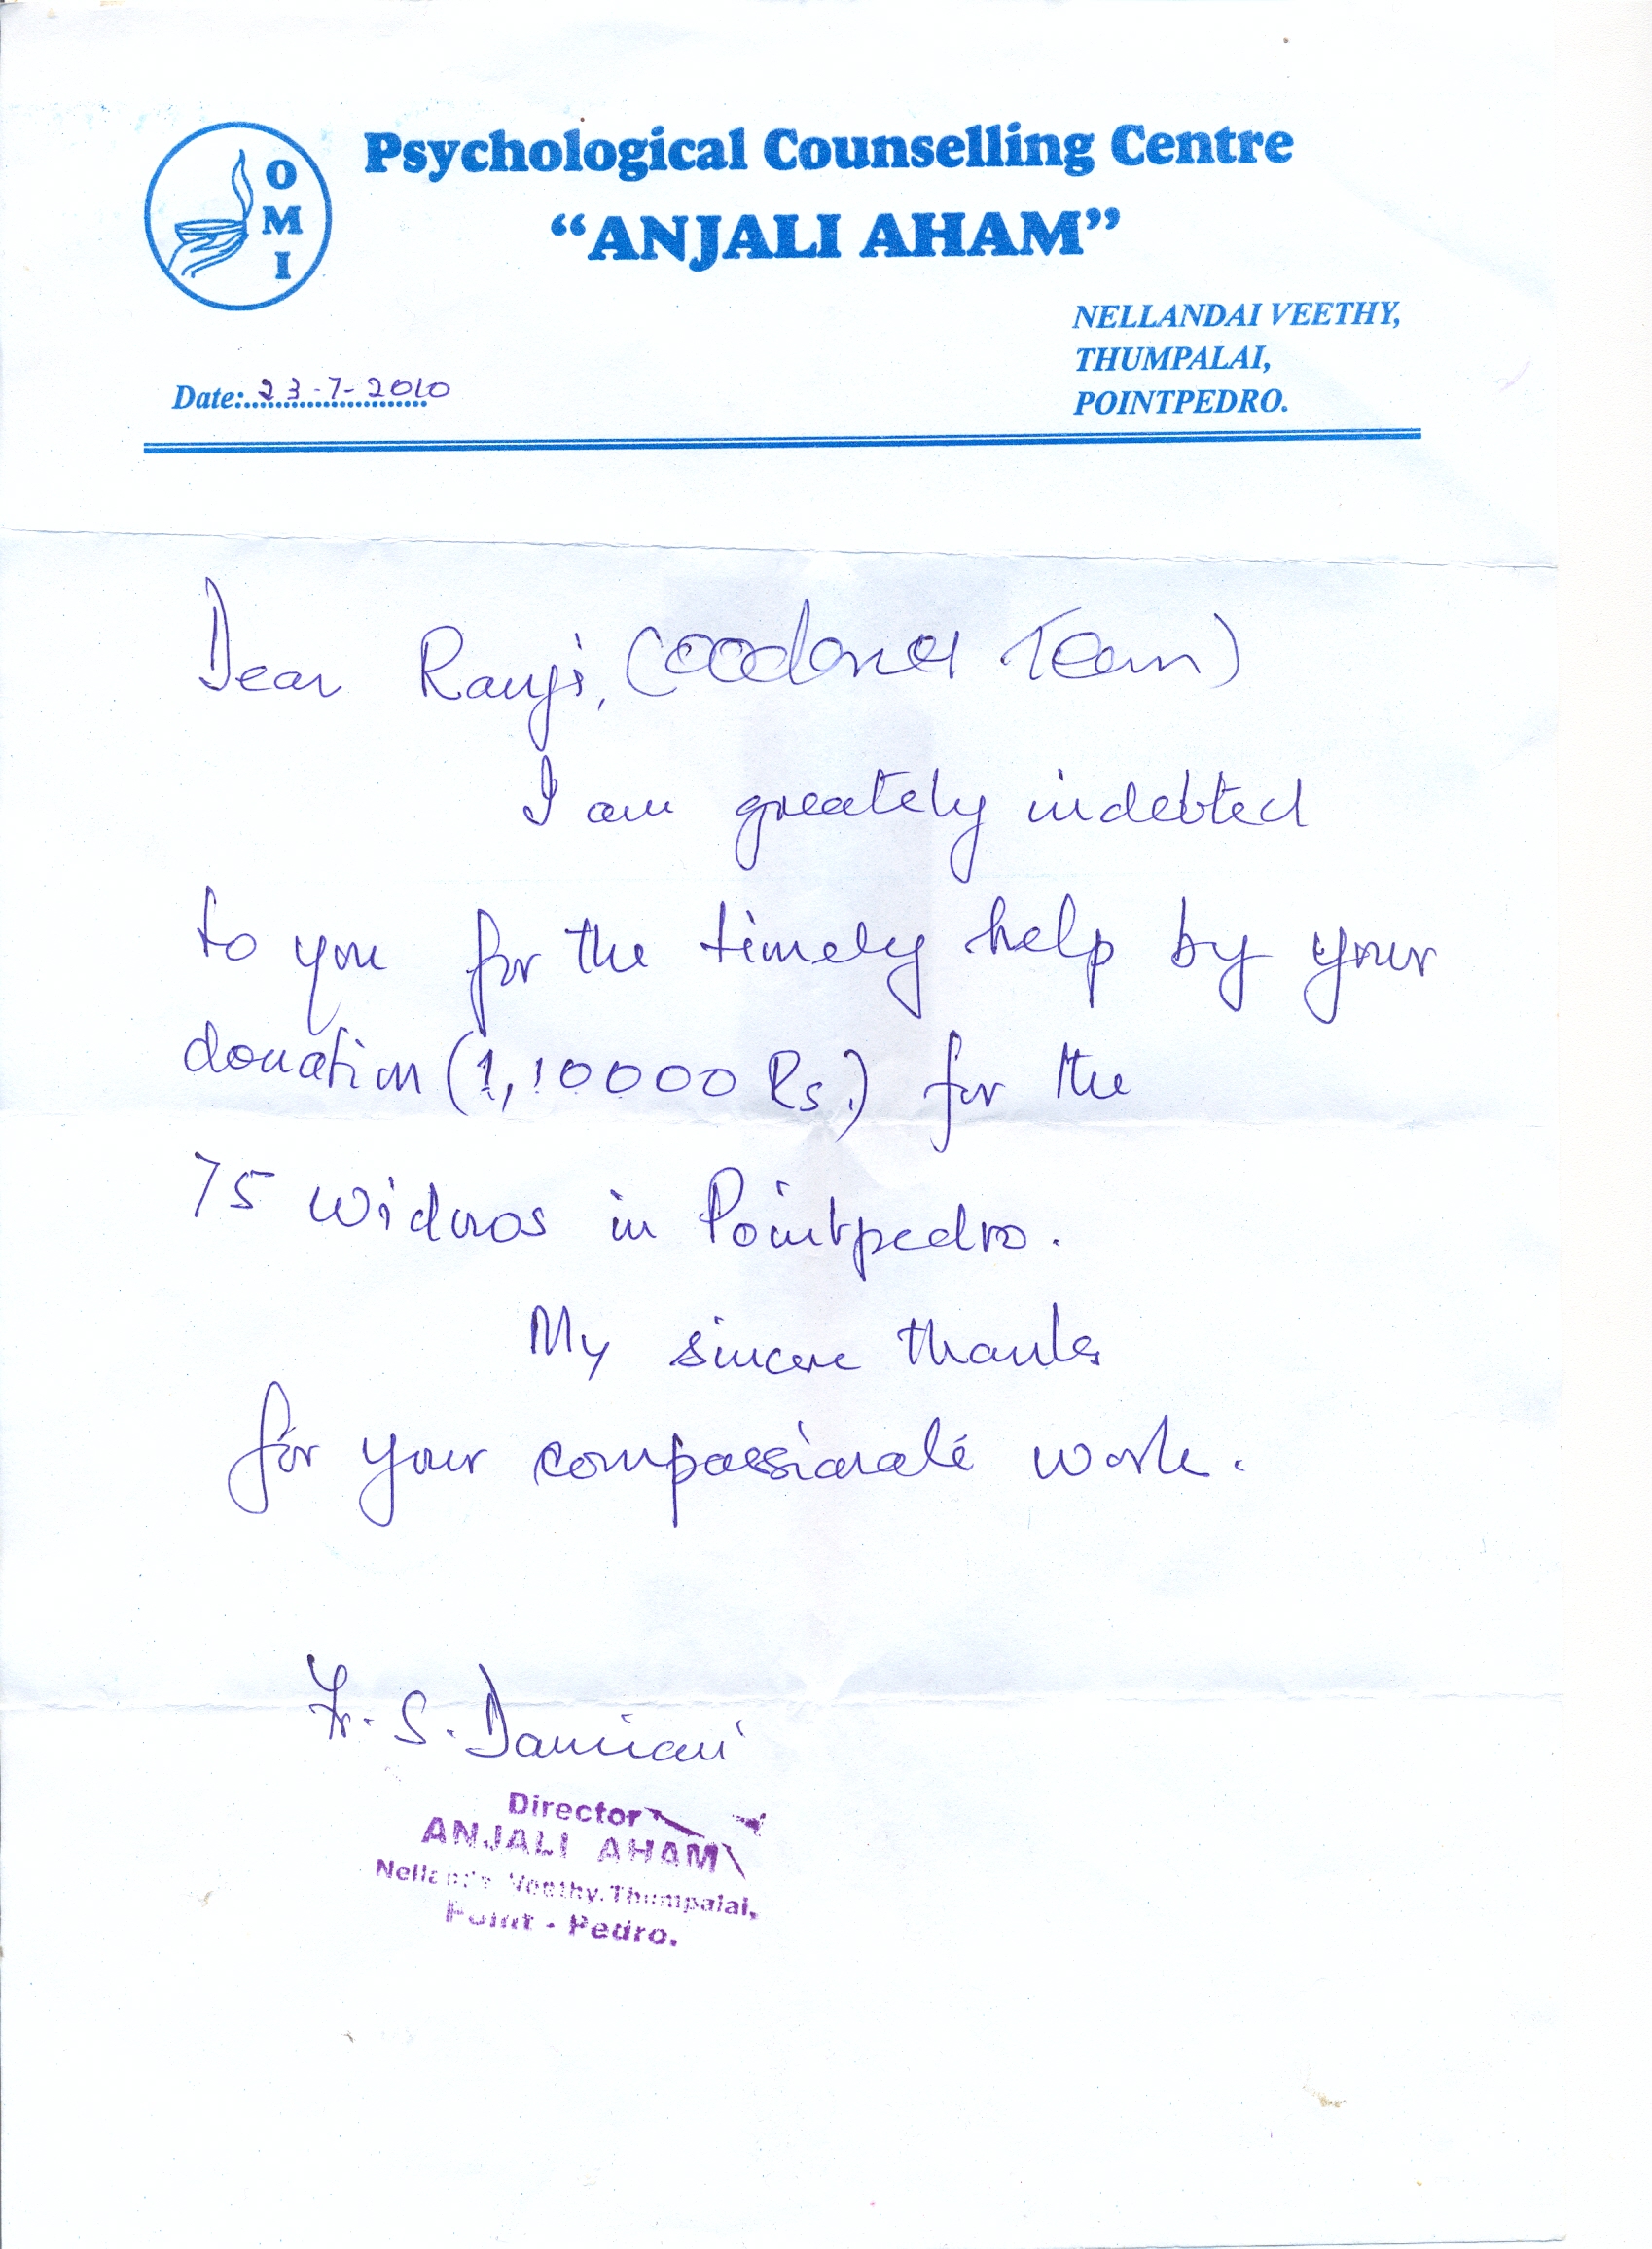 O
M
I
Psychological Counselling Centre
“ANJALI AHAM”
NELLANDAI VEETHY,
THUMPALAI,
POINTPEDRO.
Date: 23-7-2010
Dear Ranji, ( Team)
I am greately indebted
to you for the timely help by your
donation (1,10000 Rs.) for the
75 widows in Pointpedro.
My sincere thanks
for your compassionate work.
Fr. S. Damian
Director
ANJALI AHAM
Veethy, Thumpalai,
Point - Pedro.